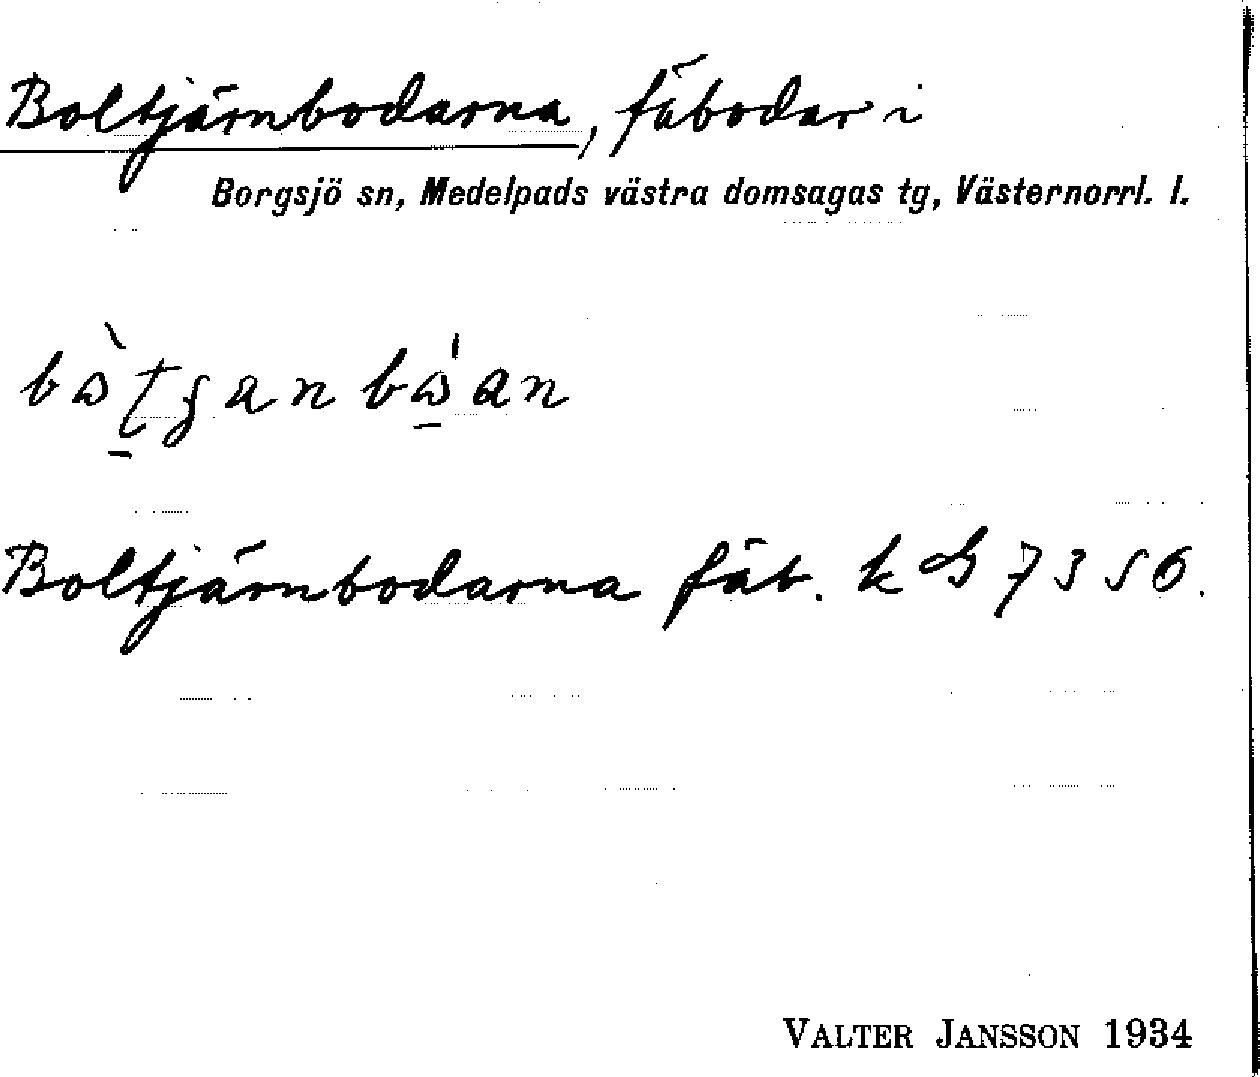 Boltjärnbodarna, fäbodar i
Borgsjö sn, Medelpads västra domsagas tg, Västernorrl. l.
Boltjärnbodarna fäb. k G 7350.
VALTER JANSSON 1934